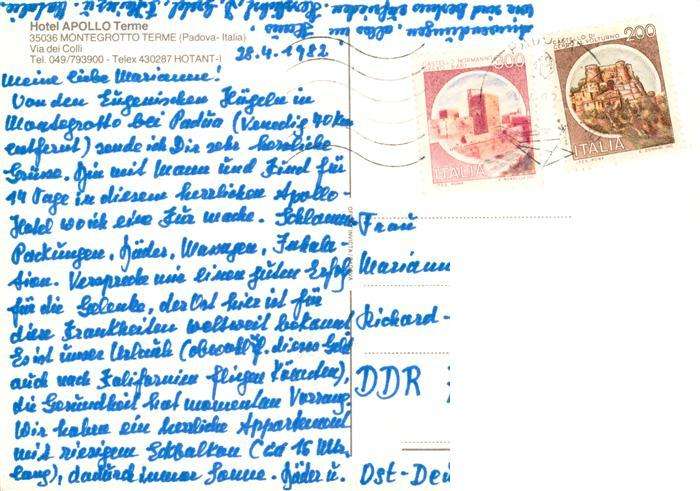 Hotel APOLLO Terme
35036 MONTEGROTTO TERME (Padova-Italia)
Via dei Colli
Tel. 049/793900 - Telex 430287 HOTANT-I
28.4.1982.
Meine liebe Marianne!
Von den Eugenischen Hügeln in
Montegrotto bei Padua (Venedig 40 km
entfernt) sende ich Dir sehr herzliche
Grüsse. Bin mit Mann und Kind für
14 Tage in diesem herrlichen Apollo-
Hotel wo ich eine Kur mache. Schlamm-
Packungen, Bäder, Massagen, Inhala-
tion. Verspreche mir einen guten Erfolg
für die Gelenke, der Ort hier ist für
diese Krankheiten weltweit bekannt
Es ist unser Urlaub (obwohl f. dieses Geld
auch nach Kalifornien fliegen könnten),
die Gesundheit hat momentan Vorrang.
Wir haben ein herrliche Appartement
mit riesigem Eckbalkon (ca 16 Mtr.
lang), dadurch immer Sonne. Bäder u.
Anwendungen, alles im Hause.
wir sind bestens zufrieden.
Herzlichst
CASTELLO NORMANNO
ITALIA
200
ITALIA
Frau
Mariann
Richard-
DDR
Ost-Deu